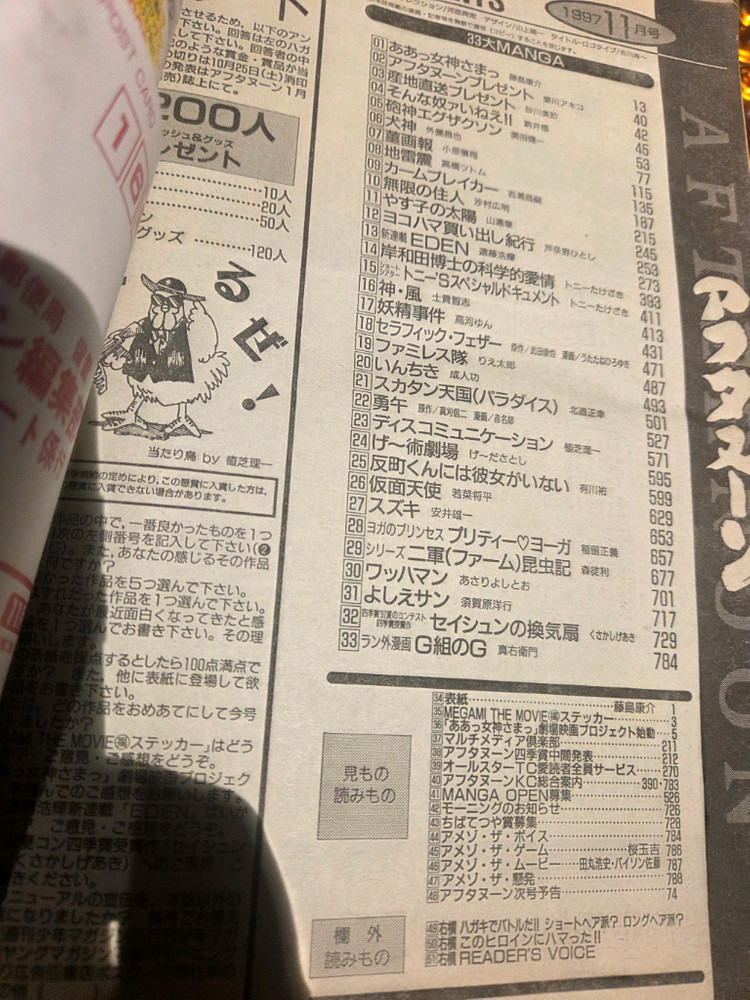 1997 11月号
33大MANGA
01 ああっ女神さまっ 藤島康介 13
02 アフタヌーンプレゼント 東川アキコ 40
03 産地直送プレゼント 42
04 そんな奴ァいねえ!! 駒井悠 45
05 砲神エグザクソン 園田健一 53
06 犬神 外薗昌也 77
07 菫画報 小原愼司 115
08 地雷震 高橋ツトム 135
09 カームブレイカー 187
10 無限の住人 沙村広明 215
11 やす子の太陽 245
12 ヨコハマ買い出し紀行 芦奈野ひとし 253
13 新連載 EDEN 遠藤浩輝 273
14 岸和田博士の科学的愛情 トニーたけざき 393
15 ショートシアター トニー'Sスペシャルドキュメント トニーたけざき 411
16 神・風 士貴智志 413
17 妖精事件 高河ゆん 431
18 セラフィック・フェザー 原作/武田俊也 漫画/うたたねひろゆき 471
19 ファミレス隊 りえ太郎 487
20 いんちき 成人功 493
21 スカタン天国(パラダイス) 北道正幸 501
22 勇午 原作/真刈信二 漫画/赤名修 527
23 ディスコミュニケーション 植芝理一 571
24 げ〜術劇場 げ〜ださとし 595
25 反町くんには彼女がいない 有川祐 599
26 仮面天使 若菜将平 629
27 スズキ 安井雄一 653
28 ヨガのプリンセス プリティー♡ヨーガ 稲留正義 657
29 シリーズ 二軍(ファーム)昆虫記 森徒利 677
30 ワッハマン あさりよしとお 701
31 よしえサン 須賀原洋行 717
32 四季賞'97夏のコンテスト四季賞受賞作 セイシュンの換気扇 くさかしげあき 729
33 ラン外漫画 G組のG 真右衛門 784
見もの
読みもの
34 表紙 藤島康介 1
35 MEGAMI THE MOVIE㊙ステッカー 3
36 「ああっ女神さまっ」劇場映画プロジェクト始動 5
37 マルチメディア倶楽部 211
38 アフタヌーン四季賞中間発表 212
39 オールスターTC愛読者全員サービス 270
40 アフタヌーンKC総合案内 390・783
41 MANGA OPEN募集 526
42 モーニングのお知らせ 726
43 ちばてつや賞募集 728
44 アメゾ・ザ・ボイス 784
45 アメゾ・ザ・ゲーム 桜玉吉 786
46 アメゾ・ザ・ムービー 田丸浩史・バイソン佐藤 787
47 アメゾ・ザ・懸発 788
48 アフタヌーン次号予告 74
欄外
読みもの
49 右横 ハガキでバトルだ!! ショートヘア派? ロングヘア派?
50 右横 このヒロインにハマった!!
51 右横 READER'S VOICE
アフタヌーン
POST CARD
16
させるため、以下のアン
下さい。回答は左のハガ
して下さい。回答者の中
のような賞金・賞品が当
切りは10月25日(土)消印
の発表はアフタヌーン1月
売)誌上にて。
200人
ッシュ&グッズ
ゼント
10人
20人
50人
グッズ 120人
るぜ!
当たり鳥 by 植芝理一
規約の定めにより、この懸賞に入賞した方は、
懸賞に入賞できない場合があります。
作品の中で、一番良かったものを1つ
次の左側番号を記入して下さい(❷
じ)。また、あなたの感じるその作品
何ですか?
かった作品を5つ選んで下さい。
ずれだった作品を1つ選んで下さい。
あなたが最近面白くなってきたと感
つ選んでお書き下さい。その理
の表紙を採点するとしたら100点満点で
すか? また、他に表紙に登場して欲
お書き下さい。
どの作品をおめあてにして今号
ましたか?
THE MOVIE㊙ステッカー」はどう
ご意見・ご感想をどうぞ。
っ女神さまっ」劇場映画プロジェク